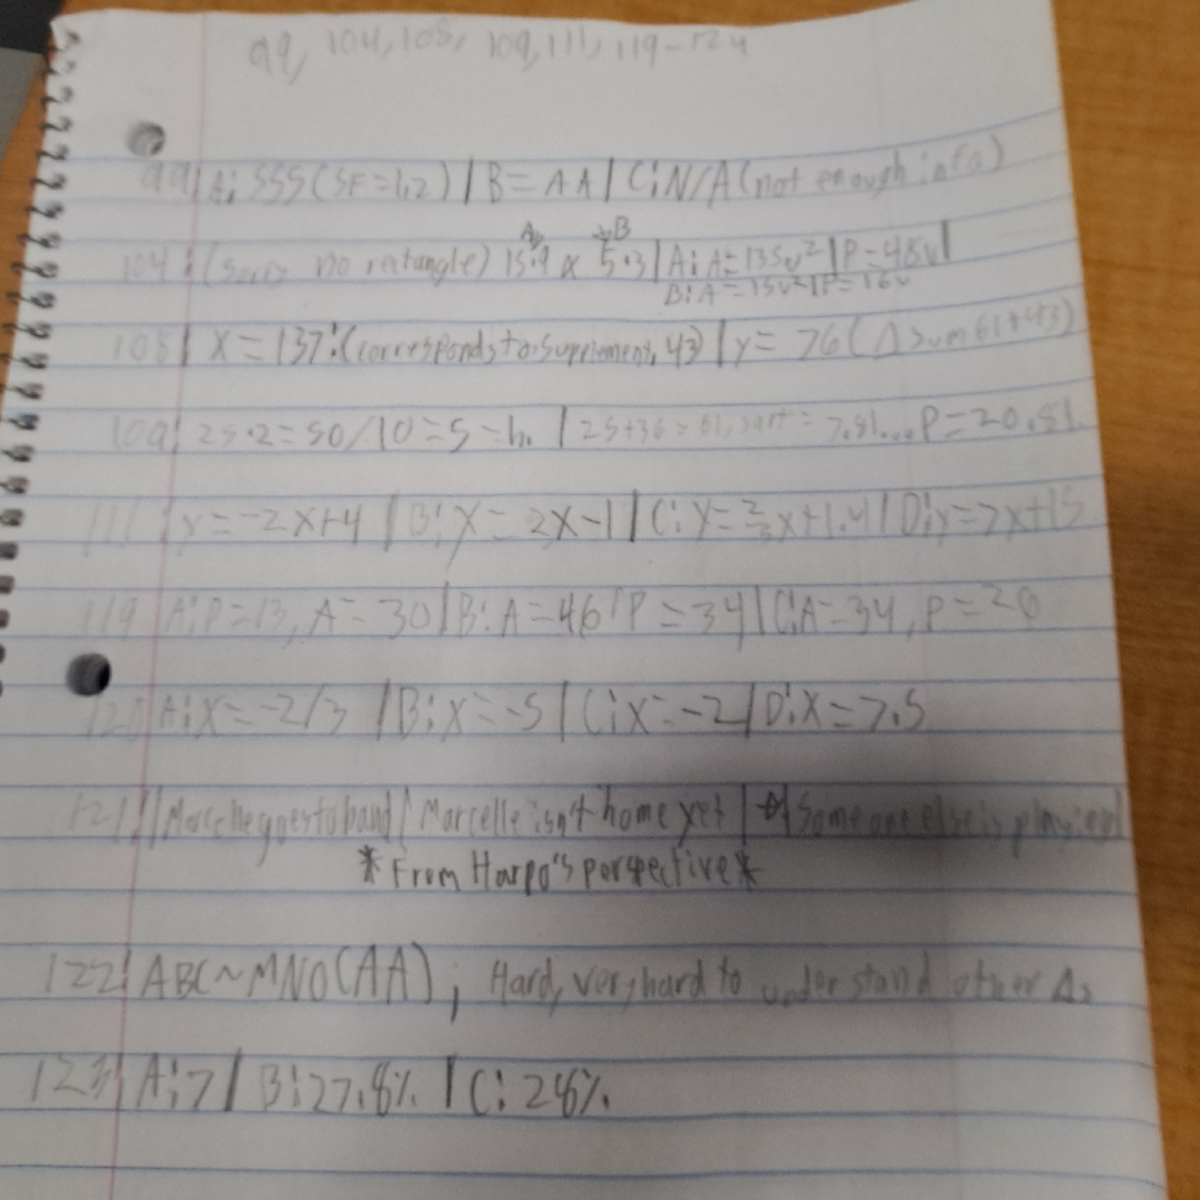 99, 104, 105, 109, 111, 119-124
99| A: SSS (SF=1.2) | B = AA | C: N/A (not enough info)
A B
104: no retangle) 15·9 5·3 | A: A=135u² | P=48u |
B: A=15u² | P=16u
105| X=137: (corresponds to supplement, 43) | y= 76 (Δ sum 61+43)
109| 25·2=50/10=5=h. | 25+36=61, = 7.81... P=20.81.
111 y=-2x+4 | B: y= 2x-1 | C: y= x+1.4 | D: y=7x+15
119 A: P=13, A=30 | B: A=46 | P=34 | C: A=34, P=26
120 A: X=-2/3 | B: X=-5 | C: X=-2 | D: X=7.5
121| Marcelle goes to band | Marcelle isn't home yet | Someone else is playing
*From Harpo's perspective*
122| ABC~MNO (AA); Hard, very hard to understand other Δs
123| A: 7 | B: 27.8% | C: 28%